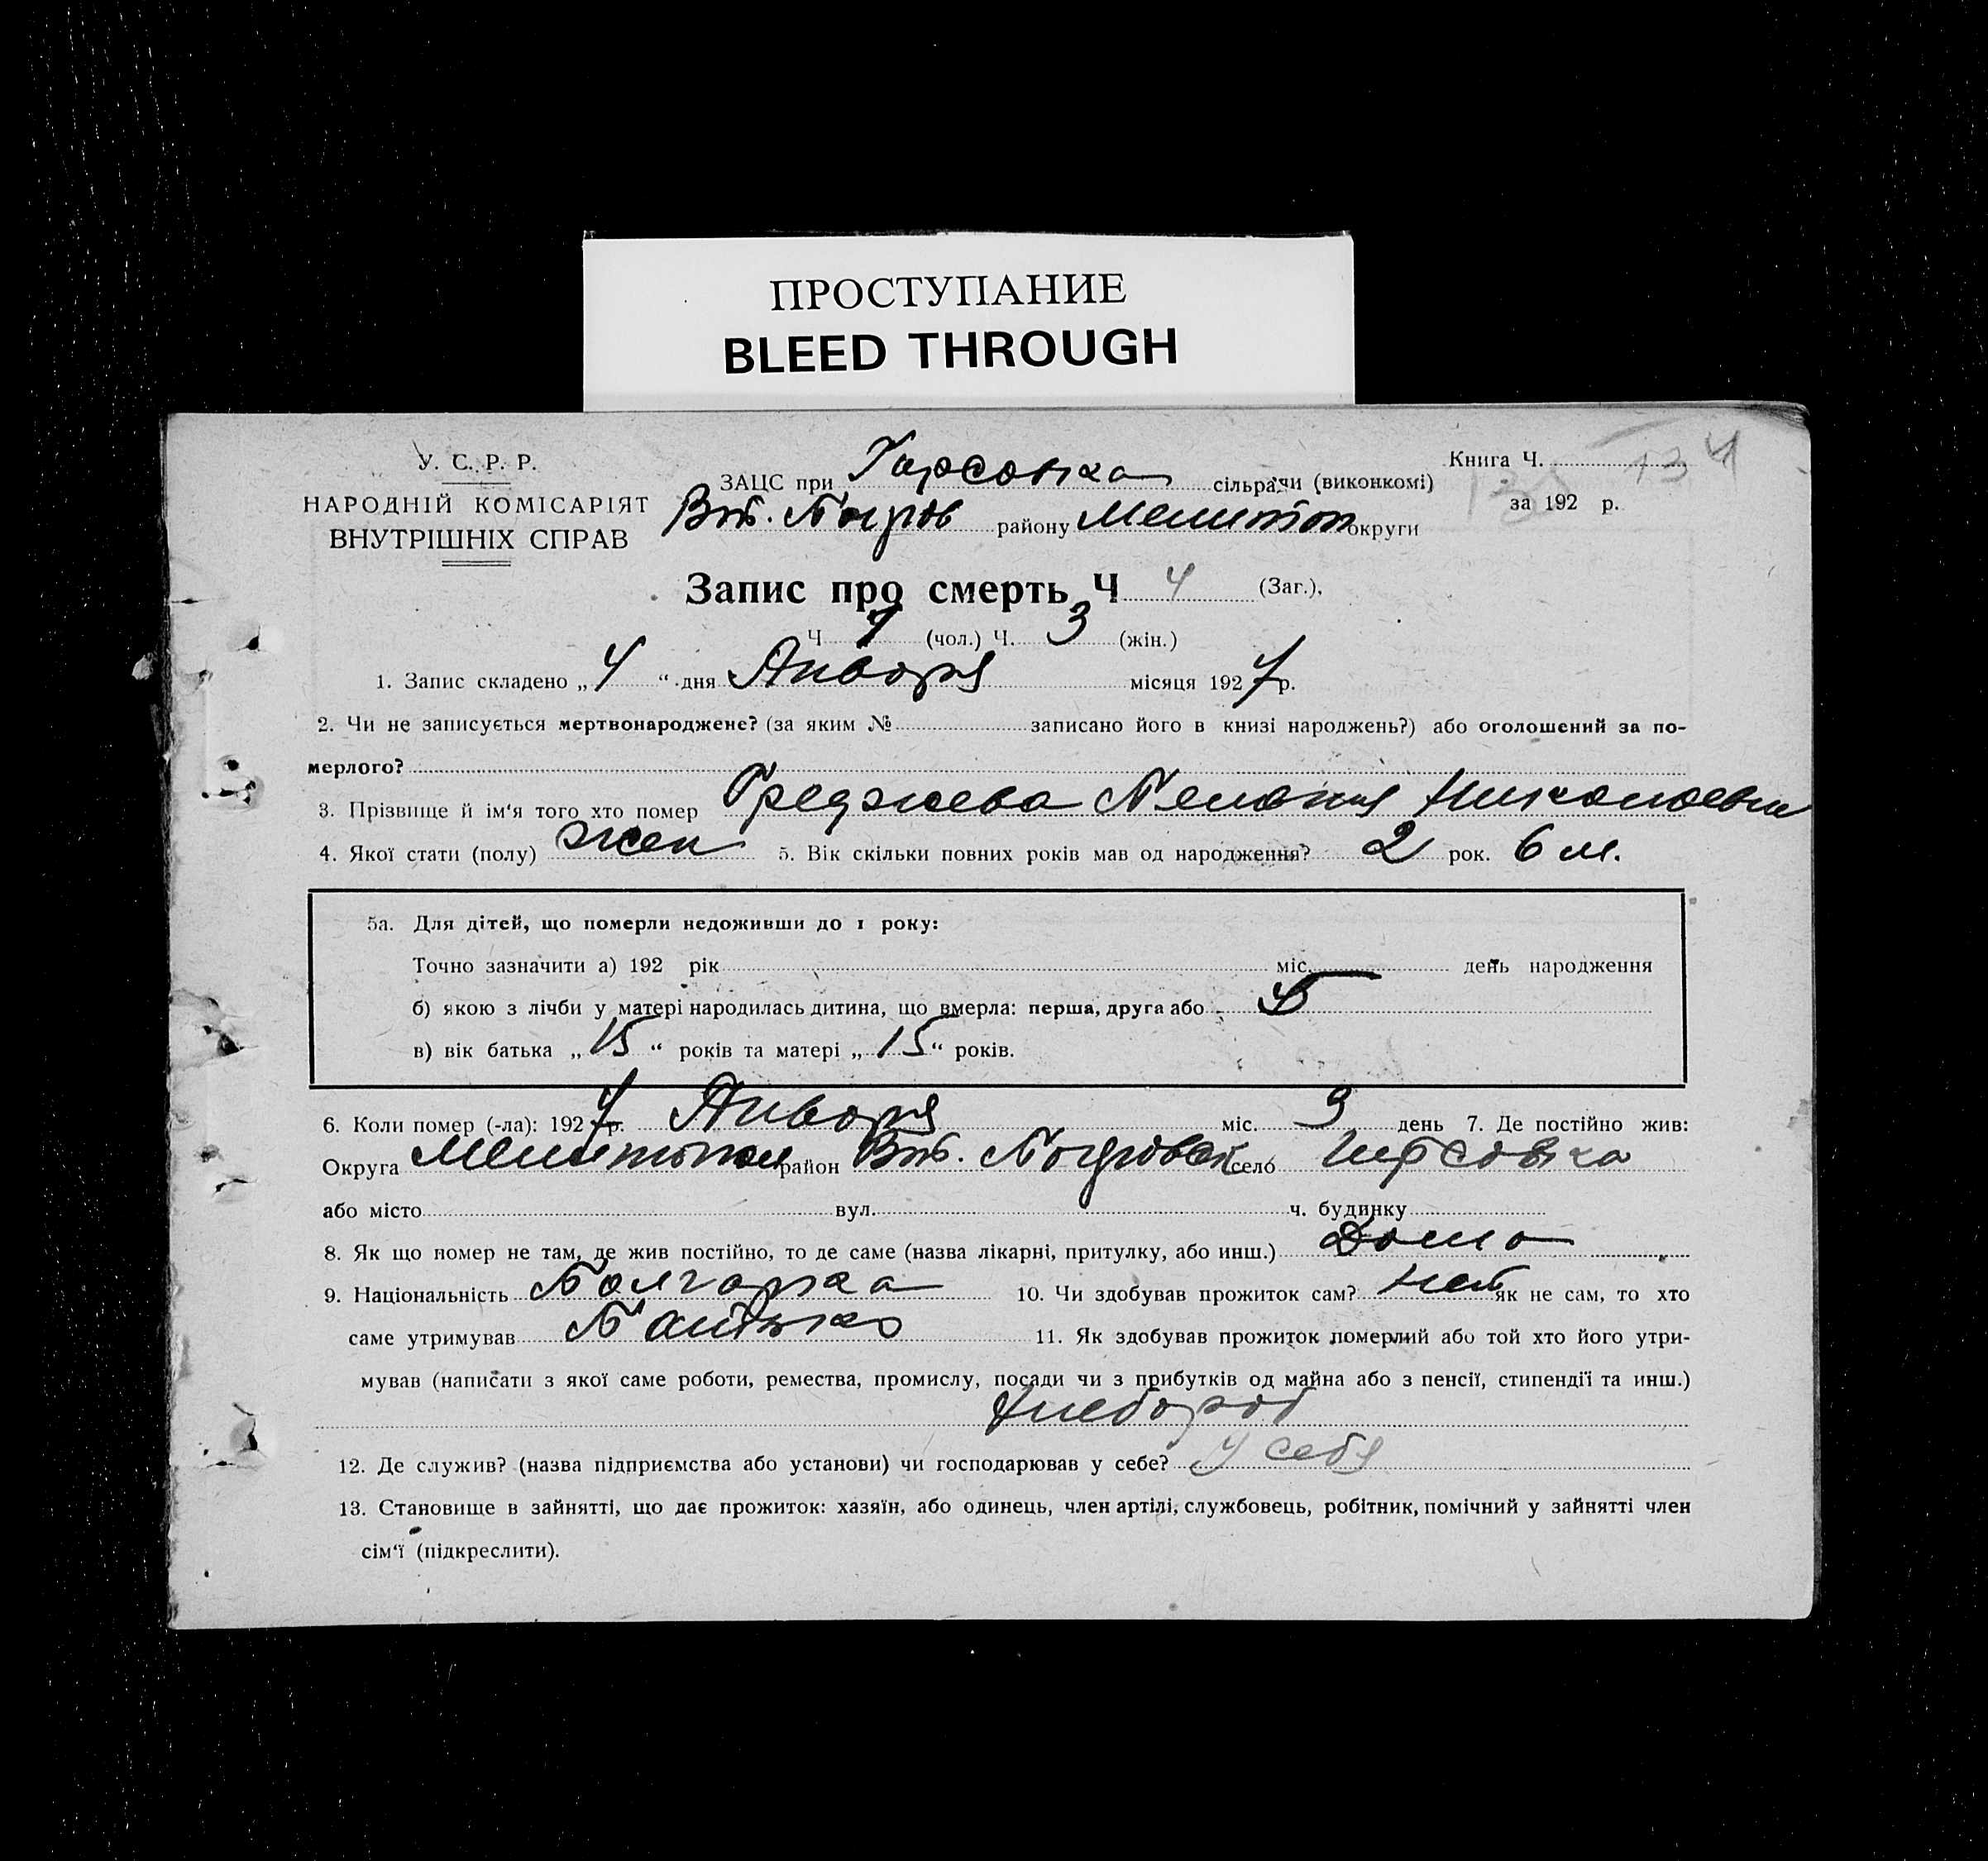 ПРОСТУПАНИЕ
BLEED THROUGH
У. С. Р. Р.
НАРОДНІЙ КОМІСАРІЯТ
ВНУТРІШНІХ СПРАВ
ЗАЦС при Гирсовка сільради (виконкомі)
району Мелитоп округи
Книга Ч. 134
за 192 р.
Запис про смерть Ч 4 (Заг.),
Ч 1 (чол.) Ч. 3 (жін.)
1. Запис складено „ 4 “ дня Января місяця 1927 р.
2. Чи не записується мертвонароджене? (за яким № записано його в книзі народжень?) або оголошений за по-
мерлого?
3. Прізвище й ім'я того хто помер Николаевна
4. Якої стати (полу) жен 5. Вік скільки повних років мав од народження? 2 рок. 6 м.
5а. Для дітей, що померли недоживши до 1 року:
Точно зазначити а) 192 рік міс. день народження
б) якою з лічби у матері народилась дитина, що вмерла: перша, друга або
в) вік батька „ “ років та матері „ “ років.
6. Коли помер (-ла): 1927 р. Января міс. 3 день 7. Де постійно жив:
Округа район село Гирсовка
або місто вул. ч. будинку
8. Як що помер не там, де жив постійно, то де саме (назва лікарні, притулку, або инш.) Дома
9. Національність Болгарка 10. Чи здобував прожиток сам? нет як не сам, то хто
саме утримував Батько 11. Як здобував прожиток померлий або той хто його утри-
мував (написати з якої саме роботи, ремества, промислу, посади чи з прибутків од майна або з пенсії, стипендії та инш.)
Хлебороб
12. Де служив? (назва підприємства або установи) чи господарював у себе? У себя
13. Становище в зайнятті, що дає прожиток: хазяїн, або одинець, член артілі, службовець, робітник, помічний у зайнятті член
сім'ї (підкреслити).